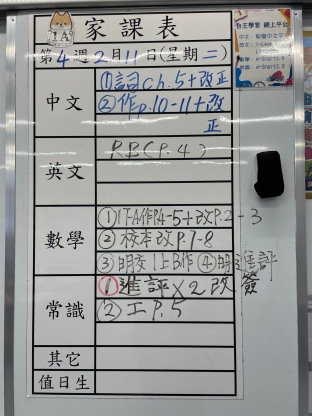 1A
家課表
第4週2月11日(星期二)
中文
①詞ch.5+改正
②作p.10-11+改正
英文
RB(P.4)
數學
①1下A作P.4-5+改P.2-3
②校本改P.7-8
③明交1上B作 ④明進評
常識
①進評×2改簽
②工P.5
其它
值日生
自主學習 網上平台